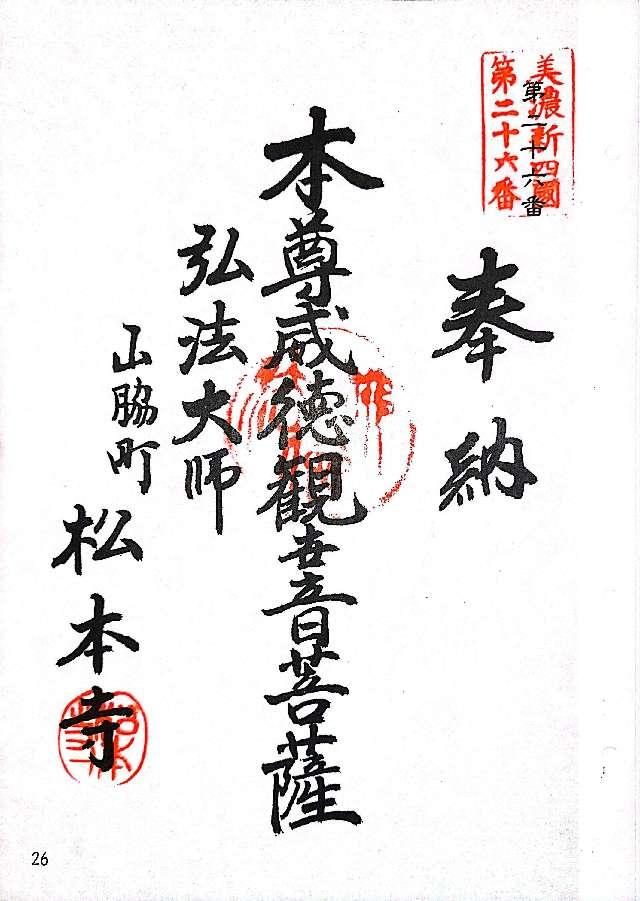 美濃新四國
第二十六番
第二十六番
奉納
本尊威徳観世音菩薩
弘法大師
山脇町
松本寺
26